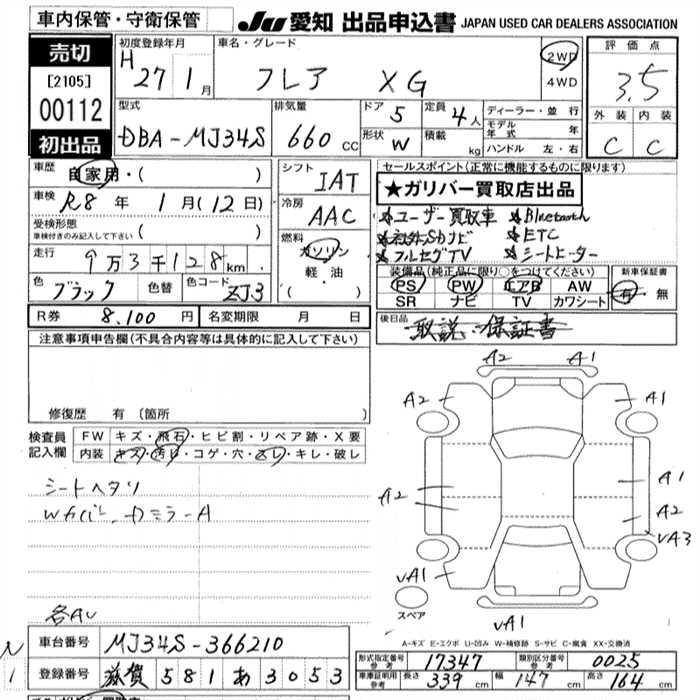 車内保管・守衛保管
JU 愛知 出品申込書 JAPAN USED CAR DEALERS ASSOCIATION
売切
[2105]
00112
初出品
初度登録年月
H 27 1月
車名・グレード
フレア XG
2WD
4WD
評価点
3.5
外装 内装
C C
型式
DBA-MJ34S
排気量
660 cc
ドア 5
形状 W
定員 4人
積載 kg
ディーラー・並行
モデル年式 年
ハンドル 左・右
車歴 自家用・( )
車検 R8年 1月(12日)
受検形態
車検付きのみ記入して下さい ( )
走行 9万3千128km
色 ブラック 色替 色コード ZJ3
シフト IAT
冷房 AAC
燃料 ガソリン
軽油
( )
セールスポイント(正常に機能するものに限ります)
★ガリバー買取店出品
★ユーザー買取車 ★Bluetooth
★社外SDナビ ★ETC
★フルセグTV ★シートヒーター
装備品(純正品に限り○をつけてください)
PS PW エアB AW
SR ナビ TV カワシート
新車保証書
有・無
R券 8,100円 名変期限 月 日
後日品 取説・保証書
注意事項申告欄(不具合内容等は具体的に記入して下さい)
修復歴 有 (箇所
検査員記入欄
FW キズ・飛石・ヒビ割・リペア跡・X要
内装 キズ・汚れ・コゲ・穴・スレ・キレ・破レ
シートヘタリ
各AU
A2 A1
A2 A1
A2 A1
A2
VA3
VA1
スペア
VA1
A-キズ E-エクボ U-凹み W-補修跡 S-サビ C-腐食 XX-交換済
N
1
車台番号 MJ34S-366210
登録番号 滋賀 581 あ 3053
形式指定番号 参考 17347 類別区分番号 参考 0025
車庫証明用 参考 長さ 339 cm 幅 147 cm 高さ 164 cm